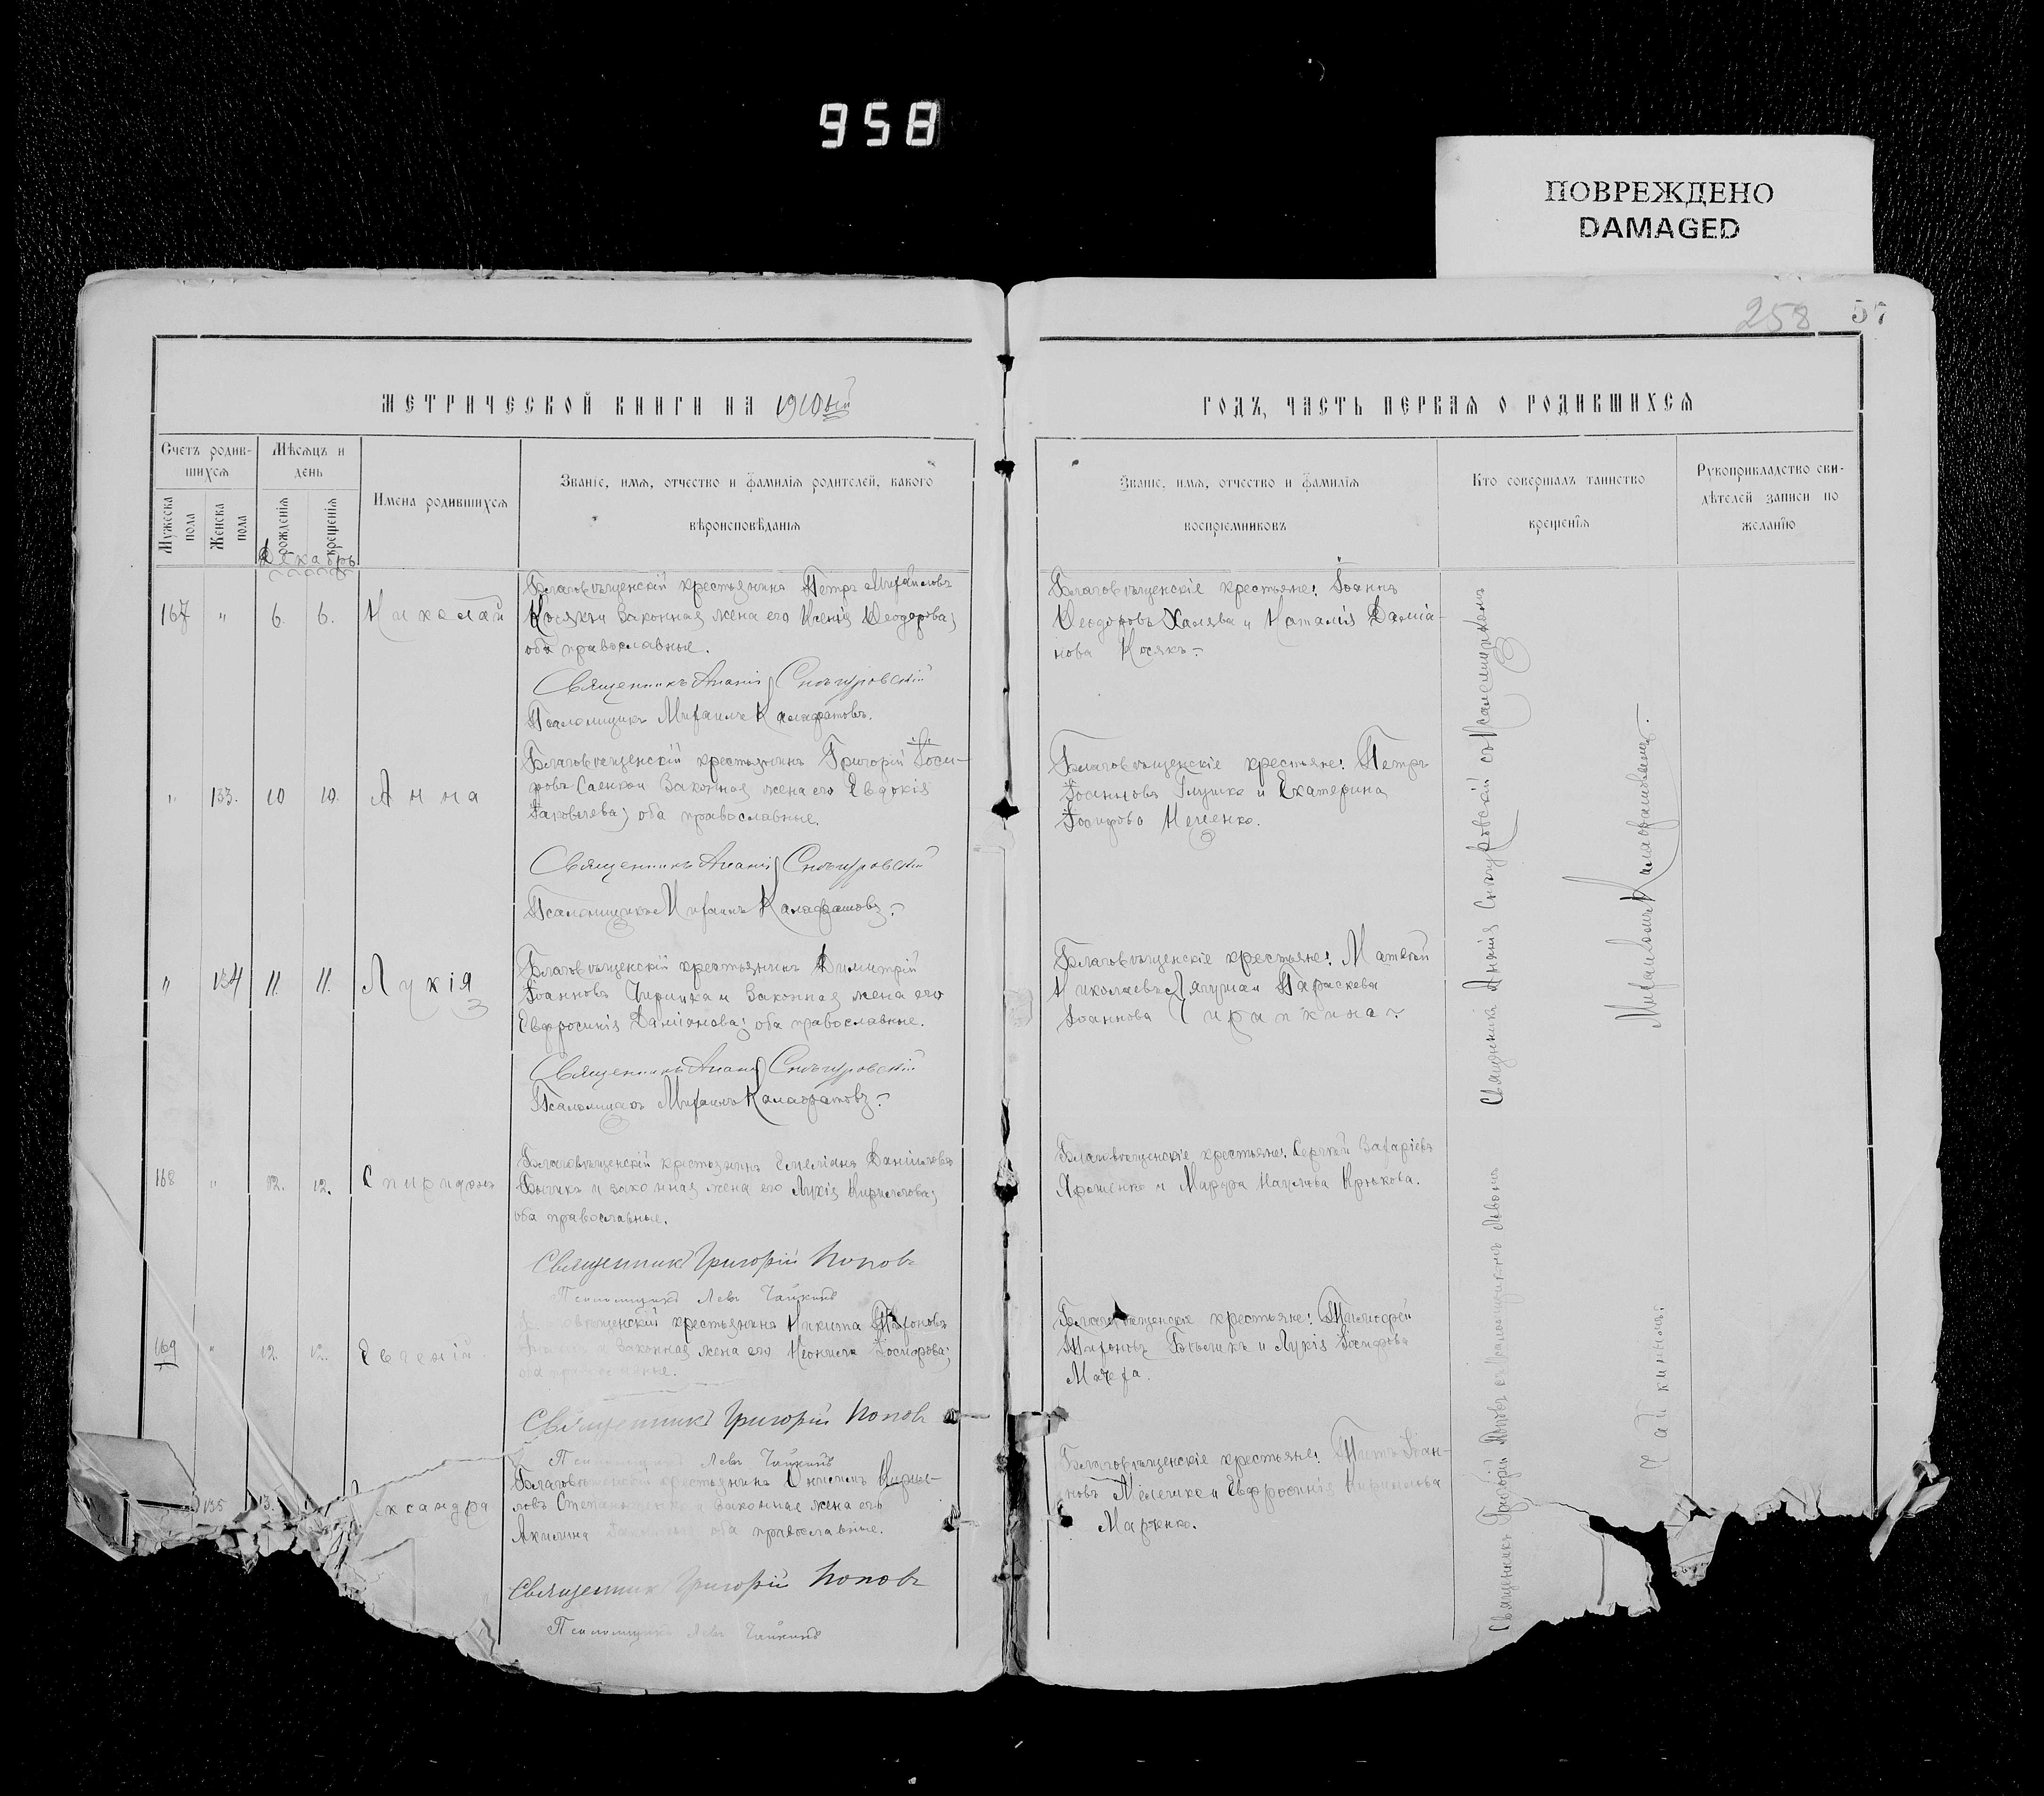 958
ПОВРЕЖДЕНО
DAMAGED
258 57
МЕТРИЧЕСКОЙ КНИГИ НА 1910ый
ГОДЪ, ЧАСТЬ ПЕРВАЯ О РОДИВШИХСЯ
Счетъ родив-
шихся
Мѣсяцъ и
день
Мужеска
пола
Женска
пола
рожденія
крещенія
Имена родившихся
Званіе, имя, отчество и фамилія родителей, какого
вѣроисповѣданія
Званіе, имя, отчество и фамилія
воспріемниковъ
Кто совершалъ таинство
крещенія
Рукоприкладство сви-
дѣтелей записи по
желанію
Декабрь
167 " 6. 6. Николай
Благовѣщенскій крестьянинъ Петръ Михаиловъ
Косякъ и законная жена его Ксенія Ѳеодорова;
оба православные.
Священникъ Ананія Снѣгуровскій
Псаломщикъ Михаилъ Калафатовъ.
Благовѣщенскіе крестьяне: Іоаннъ
Ѳеодоровъ Халява и Наталія Даміа-
нова Косякъ
" 133. 10 10. Анна
Благовѣщенскій крестьянинъ Григорій Іоси-
фовъ Саенко и законная жена его Евдокія
Іаковлева; оба православные.
Священникъ Ананія Снѣгуровскій
Псаломщикъ Михаилъ Калафатовъ
Благовѣщенскіе крестьяне: Петръ
Іоанновъ Глушко и Екатерина
Іосифова
" 134 11. 11. Лукія
Благовѣщенскій крестьянинъ Димитрій
Іоанновъ и законная жена его
Евфросинія Даміанова; оба православные.
Священникъ Ананія Снѣгуровскій
Псаломщикъ Михаилъ Калафатовъ
Благовѣщенскіе крестьяне: Матѳей
Николаевъ и Параскева
Іоаннова
168 " 12. 12. Спиридонъ
Благовѣщенскій крестьянинъ Емеліанъ Даніиловъ
и законная жена его Лукія Кириллова;
оба православные.
Священникъ Григорій Поповъ
Псаломщикъ Левъ Чайкинъ
Благовѣщенскіе крестьяне: Сергѣй Захаріевъ
Ярошенко и Марѳа Наумова Крюкова.
169 " 12. 12. Евгеній
Благовѣщенскій крестьянинъ Никита Тифоновъ
и законная жена его Іосифова;
оба православные.
Священникъ Григорій Поповъ
Псаломщикъ Левъ Чайкинъ
Благовѣщенскіе крестьяне: Тимоѳей
и Лукія Іосифова
135 13. ександра
Благовѣщенскій крестьянинъ Онисимъ Кирил-
ловъ и законная жена его
Акилина оба православные.
Священникъ Григорій Поповъ
Псаломщикъ Левъ Чайкинъ
Благовѣщенскіе крестьяне: Титъ Іоан-
новъ и Евфросинія
Марченко.
Священникъ Ананія Снѣгуровскій съ псаломщикомъ
Михаиломъ Калафатовымъ.
Священникъ Григорій Поповъ съ псаломщикомъ Львомъ
Чайкинымъ.